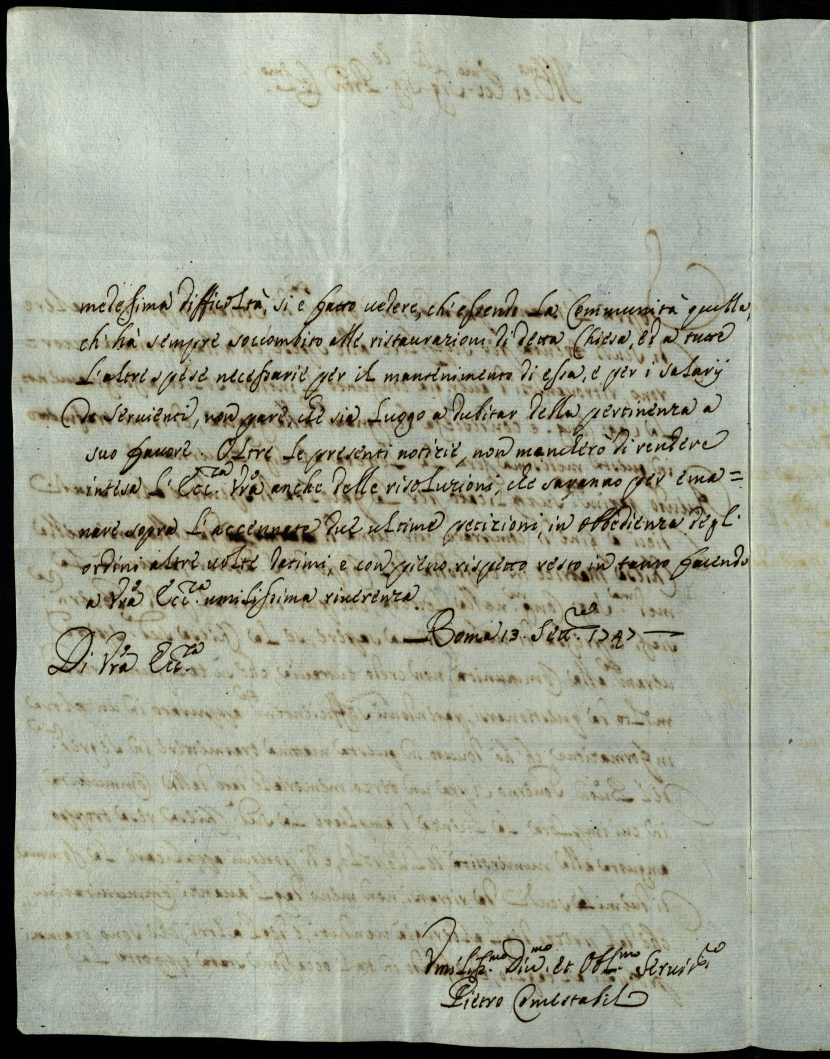 medessima difficoltà, si è fatto vedere, ch'essendo La Communità quella,
ch'hà sempre soccombito alle ristaurazioni di detta Chiesa, ed a tutte
L'altre spese necessarie per il mantenimento di essa, e per i salarij
De servienti, non pare, che sia Luogo a dubitar della pertinenza a
suo favore. Oltre Le presenti notizie, non mancherò di rendere
intesa L'Ecc.za Vrã anche delle risoluzioni, che saranno per ema=
nare sopra L'accennate due ultime petizioni, in obbedienza degl'
ordini altre volte datimi, e con pieno rispetto resto in tanto facendo
a Vrã Ecc.za umilissima riverenza.
Roma 13. Sett.re 1747
Di Vrã Ecc.za
Umiliss.mo Div.mo et Obl.mo Servit.re
Pietro Conestabil